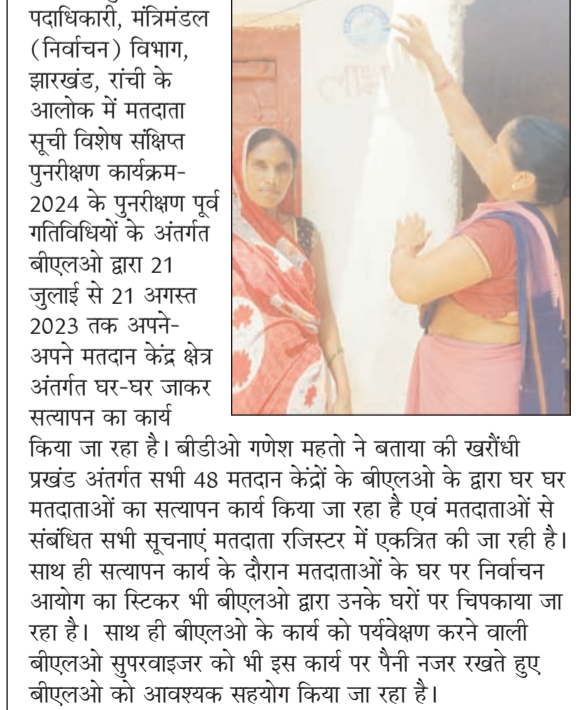 पदाधिकारी, मंत्रिमंडल
(निर्वाचन) विभाग,
झारखंड, रांची के
आलोक में मतदाता
सूची विशेष संक्षिप्त
पुनरीक्षण कार्यक्रम-
2024 के पुनरीक्षण पूर्व
गतिविधियों के अंतर्गत
बीएलओ द्वारा 21
जुलाई से 21 अगस्त
2023 तक अपने-
अपने मतदान केंद्र क्षेत्र
अंतर्गत घर-घर जाकर
सत्यापन का कार्य
किया जा रहा है। बीडीओ गणेश महतो ने बताया की खरौंधी
प्रखंड अंतर्गत सभी 48 मतदान केंद्रों के बीएलओ के द्वारा घर घर
मतदाताओं का सत्यापन कार्य किया जा रहा है एवं मतदाताओं से
संबंधित सभी सूचनाएं मतदाता रजिस्टर में एकत्रित की जा रही है।
साथ ही सत्यापन कार्य के दौरान मतदाताओं के घर पर निर्वाचन
आयोग का स्टिकर भी बीएलओ द्वारा उनके घरों पर चिपकाया जा
रहा है। साथ ही बीएलओ के कार्य को पर्यवेक्षण करने वाली
बीएलओ सुपरवाइजर को भी इस कार्य पर पैनी नजर रखते हुए
बीएलओ को आवश्यक सहयोग किया जा रहा है।